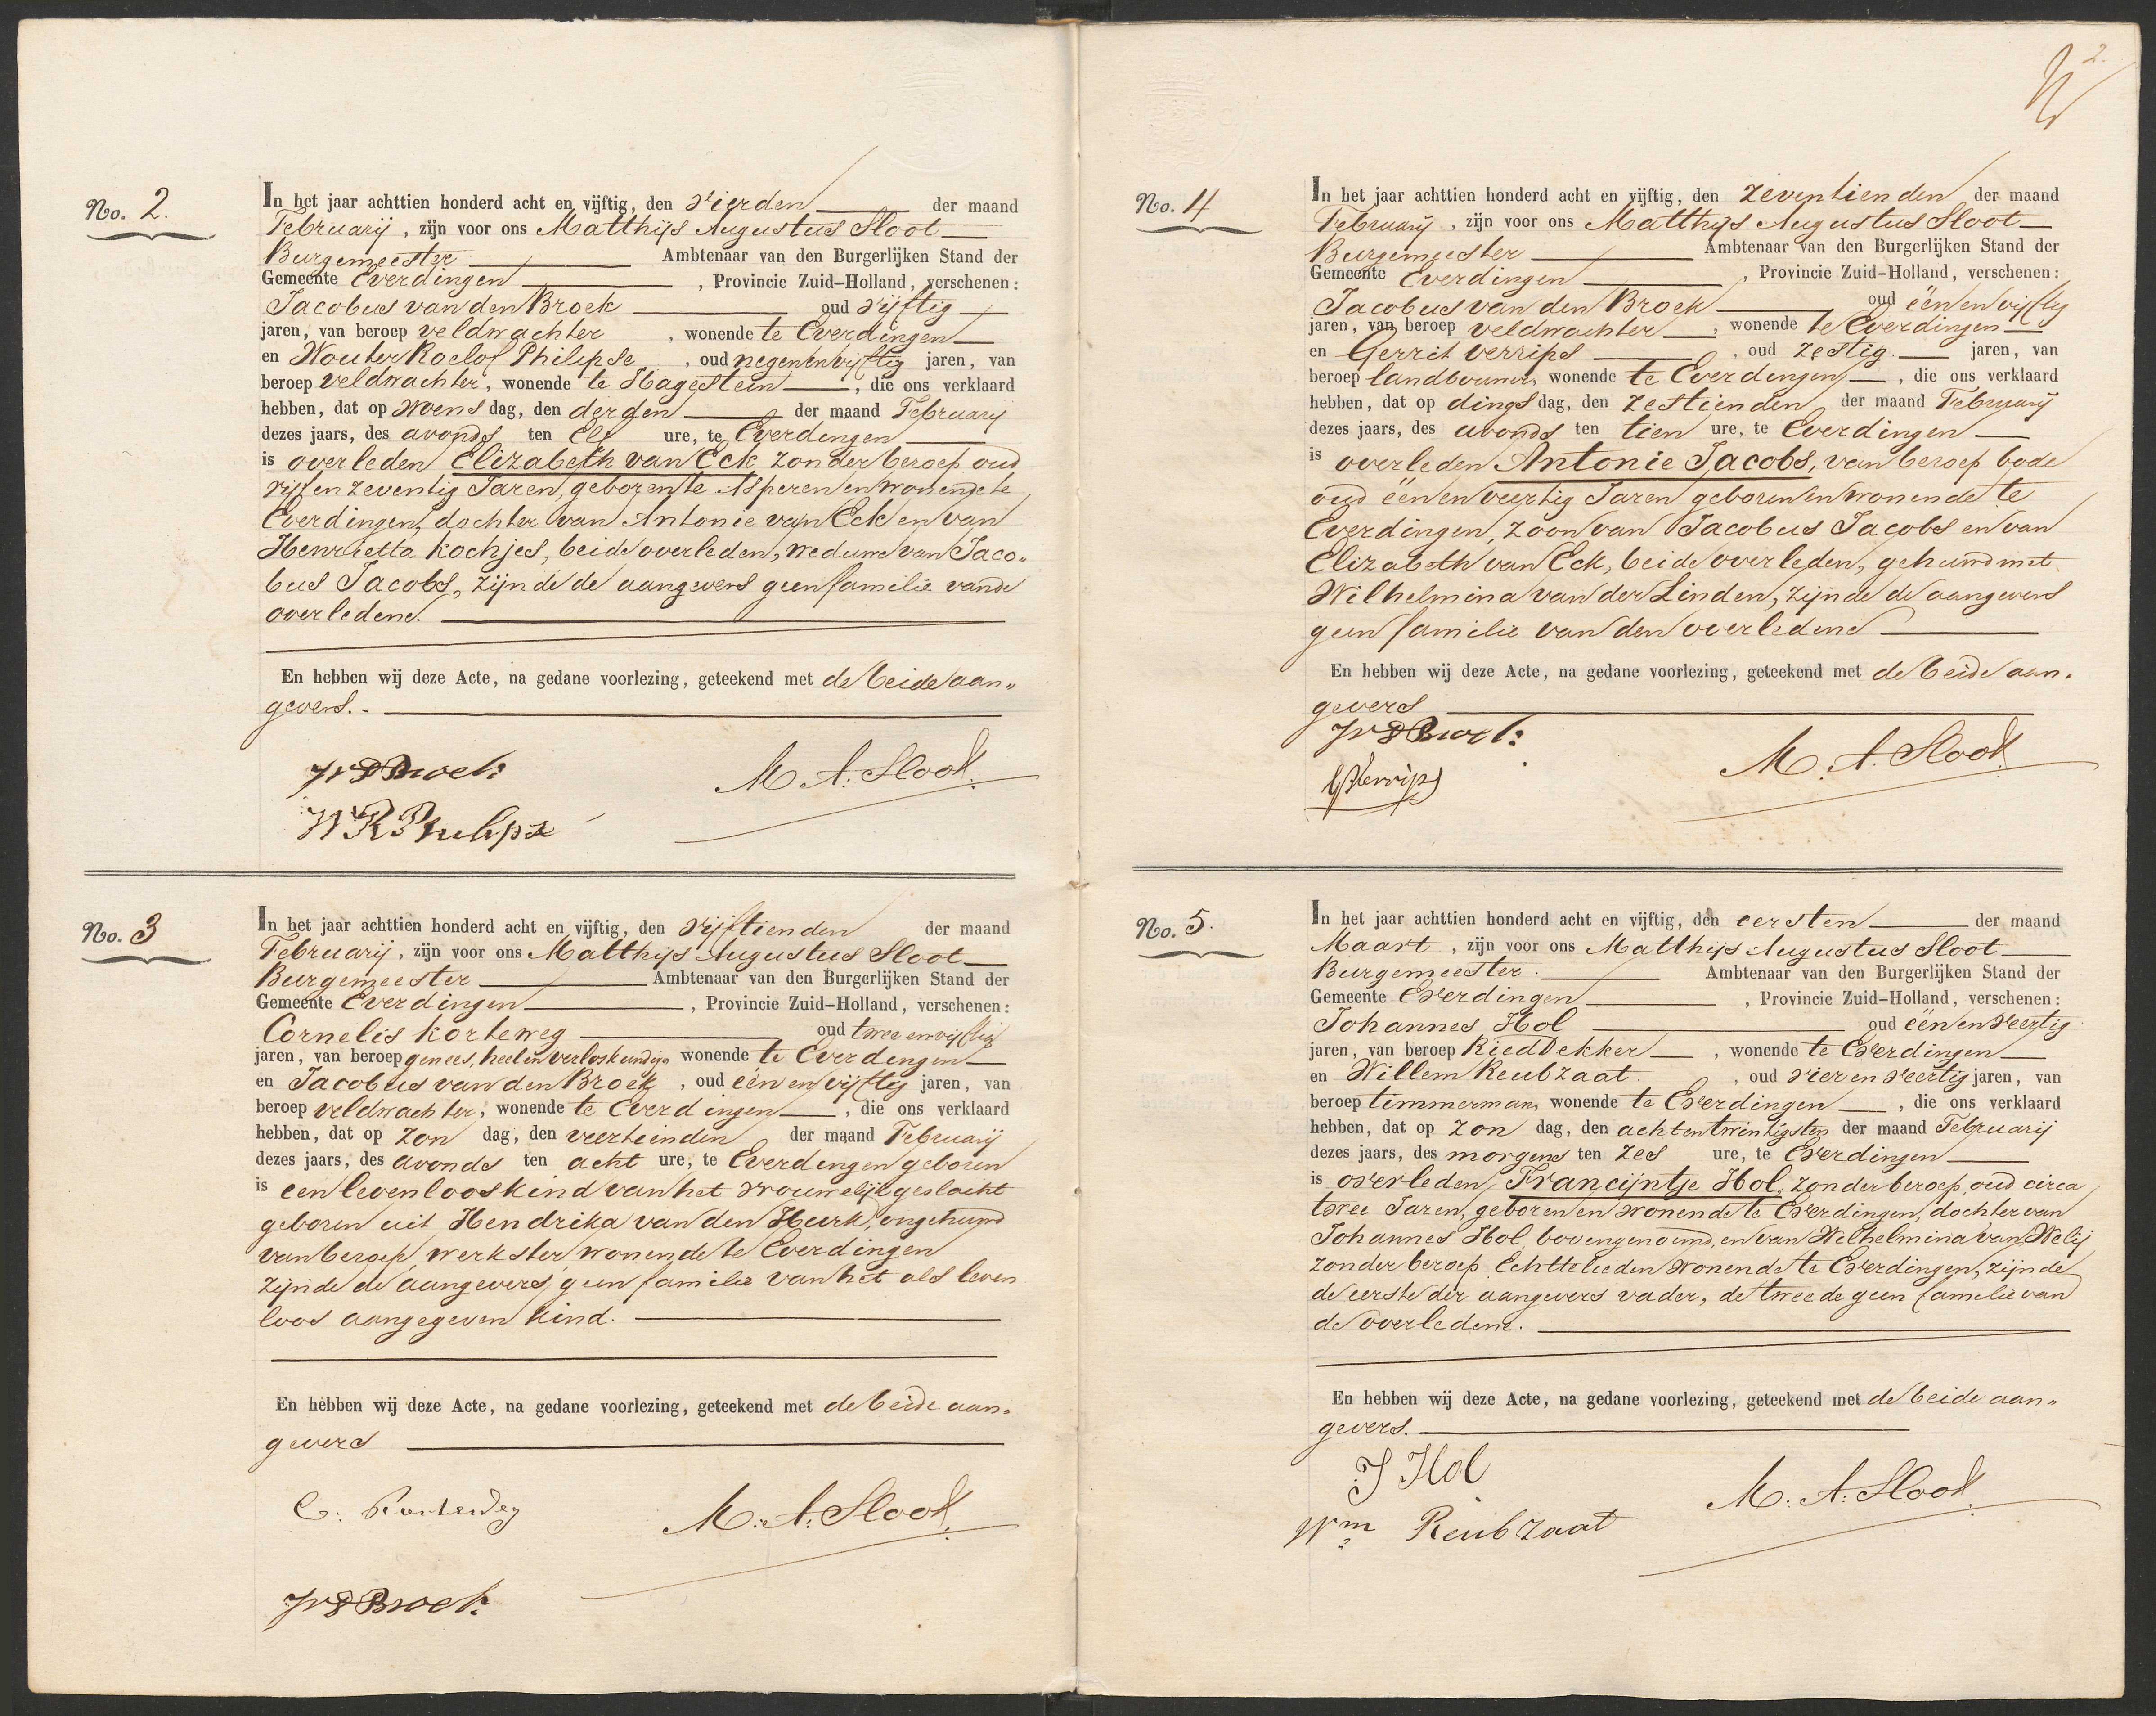 No. 2.
In het jaar achttien honderd acht en vijftig, den vierden der maand
Februarij, zijn voor ons Matthijs Augustus Sloot
Burgemeester Ambtenaar van den Burgerlijken Stand der
Gemeente Everdingen, Provincie Zuid-Holland, verschenen:
Jacobus van den Broek oud vijftig
jaren, van beroep veldwachter, wonende te Everdingen
en Wouter Roelof Philipse, oud negenenvijftig jaren, van
beroep veldwachter, wonende te Hagestein, die ons verklaard
hebben, dat op woensdag, den derden der maand Februarij
dezes jaars, des avonds ten elf ure, te Everdingen
is overleden Elizabeth van Eck zonder beroep oud
vijf en zeventig Jaren, geboren te Asperen en wonende te
Everdingen, dochter van Antonie van Eck en van
Henrietta Kochjes, beide overleden, weduwe van Jaco„
bus Jacobs, zijnde de aangevers geen familie van de
overledene.
En hebben wij deze Acte, na gedane voorlezing, geteekend met de beide aan„
gevers.
JvdBroek
M. A. Sloot.
WRPhilipse
No. 3
In het jaar achttien honderd acht en vijftig, den vijftienden der maand
Februarij, zijn voor ons Matthijs Augustus Sloot
Burgemeester Ambtenaar van den Burgerlijken Stand der
Gemeente Everdingen, Provincie Zuid-Holland, verschenen:
Cornelis Korteweg oud twee en vijftig
jaren, van beroep genees, heel en verloskundige wonende te Everdingen
en Jacobus van den Broek, oud één en vijftig jaren, van
beroep veldwachter, wonende te Everdingen, die ons verklaard
hebben, dat op zon dag, den veertienden der maand Februarij
dezes jaars, des avonds ten acht ure, te Everdingen geboren
is een levenloos kind van het vrouwelijk geslacht
geboren uit Hendrika van den Heuk, ongehuwd
van beroep werkster wonende te Everdingen
zijnde de aangevers geen familie van het als leven
loos aangegeven kind.
En hebben wij deze Acte, na gedane voorlezing, geteekend met de beide aan„
gevers
C. Korteweg
M. A. Sloot.
JvdBroek
2.
No. 4
In het jaar achttien honderd acht en vijftig, den zeventienden der maand
Februarij, zijn voor ons Matthijs Augustus Sloot
Burgemeester Ambtenaar van den Burgerlijken Stand der
Gemeente Everdingen, Provincie Zuid-Holland, verschenen:
Jacobus van den Broek oud één en vijftig
jaren, van beroep veldwachter, wonende te Everdingen
en Gerrit Verrips, oud zestig. jaren, van
beroep landbouwer, wonende te Everdingen, die ons verklaard
hebben, dat op dingsdag, den zestienden der maand Februarij
dezes jaars, des avonds ten tien ure, te Everdingen
is overleden Antonie Jacobs, van beroep bode
oud één en veertig Jaren geboren en wonende te
Everdingen, zoon van Jacobus Jacobs en van
Elizabeth van Eck, beide overleden, gehuwd met
Wilhelmina van der Linden, zijnde de aangevers
geen familie van den overledene
En hebben wij deze Acte, na gedane voorlezing, geteekend met de beide aan„
gevers
JvdBroek
M. A. Sloot.
GVerrips
No. 5.
In het jaar achttien honderd acht en vijftig, den eersten der maand
Maart, zijn voor ons Matthijs Augustus Sloot
Burgemeester. Ambtenaar van den Burgerlijken Stand der
Gemeente Everdingen, Provincie Zuid-Holland, verschenen:
Johannes Hol oud één en veertig
jaren, van beroep Rieddekker, wonende te Everdingen
en Willem Reubzaat., oud vier en veertig jaren, van
beroep timmerman, wonende te Everdingen, die ons verklaard
hebben, dat op zon dag, den achtentwintigsten der maand Februarij
dezes jaars, des morgens ten zes ure, te Everdingen
is overleden, Francijntje Hol, zonder beroep, oud circa
twee Jaren, geboren en wonende te Everdingen, dochter van
Johannes Hol bovengenoemd, en van Wilhelmina van Welij
zonder beroep Echtelieden wonende te Everdingen, zijnde
de eerste der aangevers vader, de tweede geen familie van
de overledene.
En hebben wij deze Acte, na gedane voorlezing, geteekend met de beide aan„
gevers.
J Hol
M. A. Sloot.
Wm Reubzaat